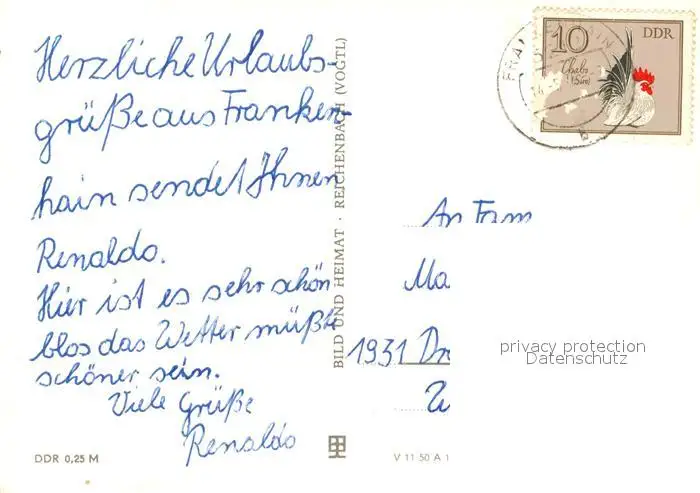 Herzliche Urlaubs-
grüße aus Franken-
hain sendet Ihnen
Renaldo.
Hier ist es sehr schön
blos das Wetter müßte
schöner sein.
Viele Grüße
Renaldo
DDR 0,25 M
BILD UND HEIMAT · REICHENBACH (VOGTL)
V 11 50 A 1
10
DDR
Chabo
An Fam
Ma
1931
privacy protection
Datenschutz